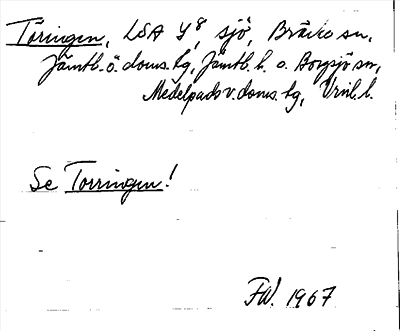 Töringen, LSA Y8, sjö, Bräcke sn,
Jämtl. ö. doms. hg, Jämtl. l. o. Borgsjö sn,
Medelpads v. doms. hg, Vnl. l.
Se Torringen!
FW. 1967